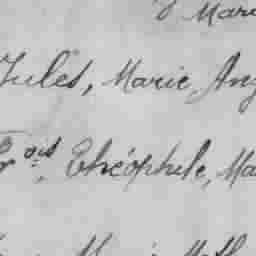 Mari
Jules, Marie, Ang
Fr.ois, Théophile, Ma